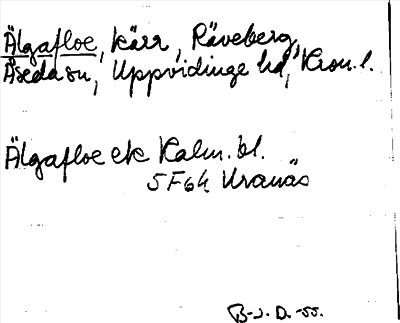 Älgafloe, kärr, Räveberg,
Åseda sn, Uppvidinge hd, Kron. l.
Älgafloe ek Kalm. bl.
5F6h Kranås
B-J. D. -55.